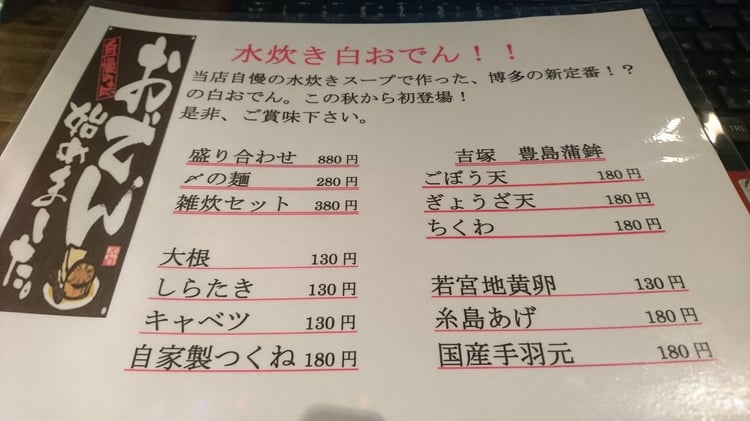 自慢の味
おでん
始めました。
水炊き白おでん！！
当店自慢の水炊きスープで作った、博多の新定番！？
の白おでん。この秋から初登場！
是非、ご賞味下さい。
盛り合わせ 880円
〆の麺 280円
雑炊セット 380円
大根 130円
しらたき 130円
キャベツ 130円
自家製つくね 180円
吉塚 豊島蒲鉾
ごぼう天 180円
ぎょうざ天 180円
ちくわ 180円
若宮地黄卵 130円
糸島あげ 180円
国産手羽元 180円